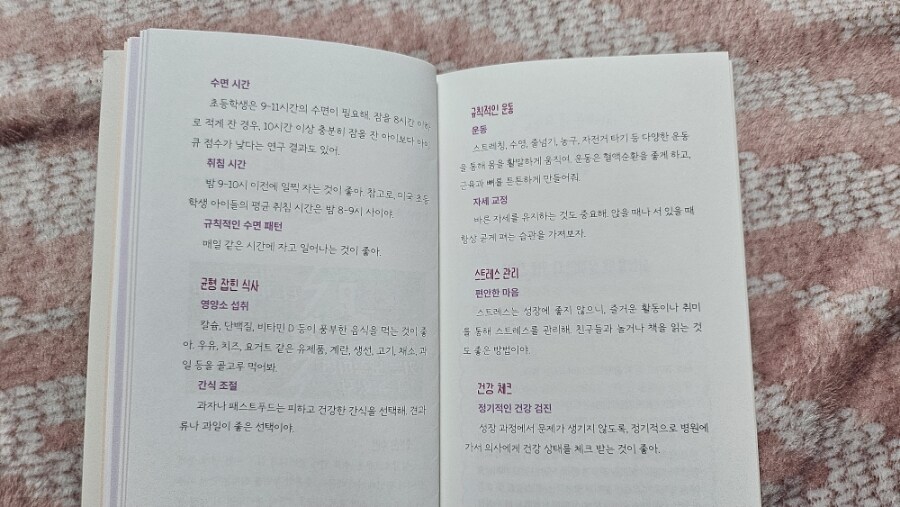 수면 시간
초등학생은 9-11시간의 수면이 필요해. 잠을 8시간 이하
로 적게 잔 경우, 10시간 이상 충분히 잠을 잔 아이보다
큐 점수가 낮다는 연구 결과도 있어.
취침 시간
밤 9-10시 이전에 일찍 자는 것이 좋아. 참고로, 미국 초등
학생 아이들의 평균 취침 시간은 밤 8-9시 사이야.
규칙적인 수면 패턴
매일 같은 시간에 자고 일어나는 것이 좋아.
균형 잡힌 식사
영양소 섭취
칼슘, 단백질, 비타민 D 등이 풍부한 음식을 먹는 것이 좋
아. 우유, 치즈, 요거트 같은 유제품, 계란, 생선, 고기, 채소, 과
일 등을 골고루 먹어봐.
간식 조절
과자나 패스트푸드는 피하고 건강한 간식을 선택해. 견과
류나 과일이 좋은 선택이야.
규칙적인 운동
운동
스트레칭, 수영, 줄넘기, 농구, 자전거 타기 등 다양한 운동
을 통해 몸을 활발하게 움직여. 운동은 혈액순환을 좋게 하고,
근육과 뼈를 튼튼하게 만들어줘.
자세 교정
바른 자세를 유지하는 것도 중요해. 앉을 때나 서 있을 때
항상 곧게 펴는 습관을 가져보자.
스트레스 관리
편안한 마음
스트레스는 성장에 좋지 않으니, 즐거운 활동이나 취미
를 통해 스트레스를 관리해. 친구들과 놀거나 책을 읽는 것
도 좋은 방법이야.
건강 체크
정기적인 건강 검진
성장 과정에서 문제가 생기지 않도록, 정기적으로 병원에
가서 의사에게 건강 상태를 체크 받는 것이 좋아.